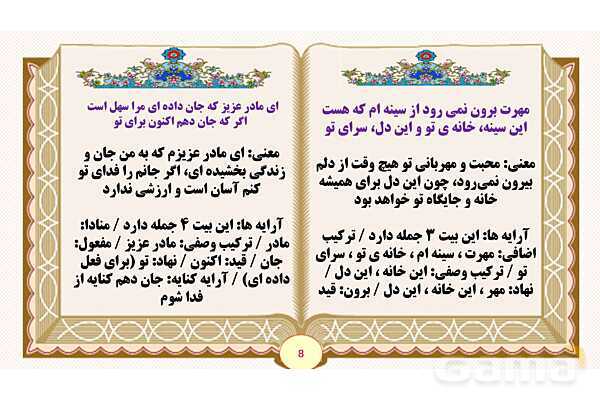 مهرت برون نمی رود از سینه ام که هست
این سینه، خانه ی تو و این دل، سرای تو
معنی: محبت و مهربانی تو هیچ وقت از دلم
بیرون نمی‌رود، چون این دل برای همیشه
خانه و جایگاه تو خواهد بود
آرایه ها: این بیت ۳ جمله دارد / ترکیب
اضافی: مهرت ، سینه ام ، خانه ی تو ، سرای
تو / ترکیب وصفی: این خانه ، این دل /
نهاد: مهر ، این خانه ، این دل / برون: قید
ای مادر عزیز که جان داده ای مرا سهل است
اگر که جان دهم اکنون برای تو
معنی: ای مادر عزیزم که به من جان و
زندگی بخشیده ای، اگر جانم را فدای تو
کنم آسان است و ارزشی ندارد
آرایه ها: این بیت ۴ جمله دارد / منادا:
مادر / ترکیب وصفی: مادر عزیز / مفعول:
جان / قید: اکنون / نهاد: تو (برای فعل
داده ای) / آرایه کنایه: جان دهم کنایه از
فدا شوم
8
Gama